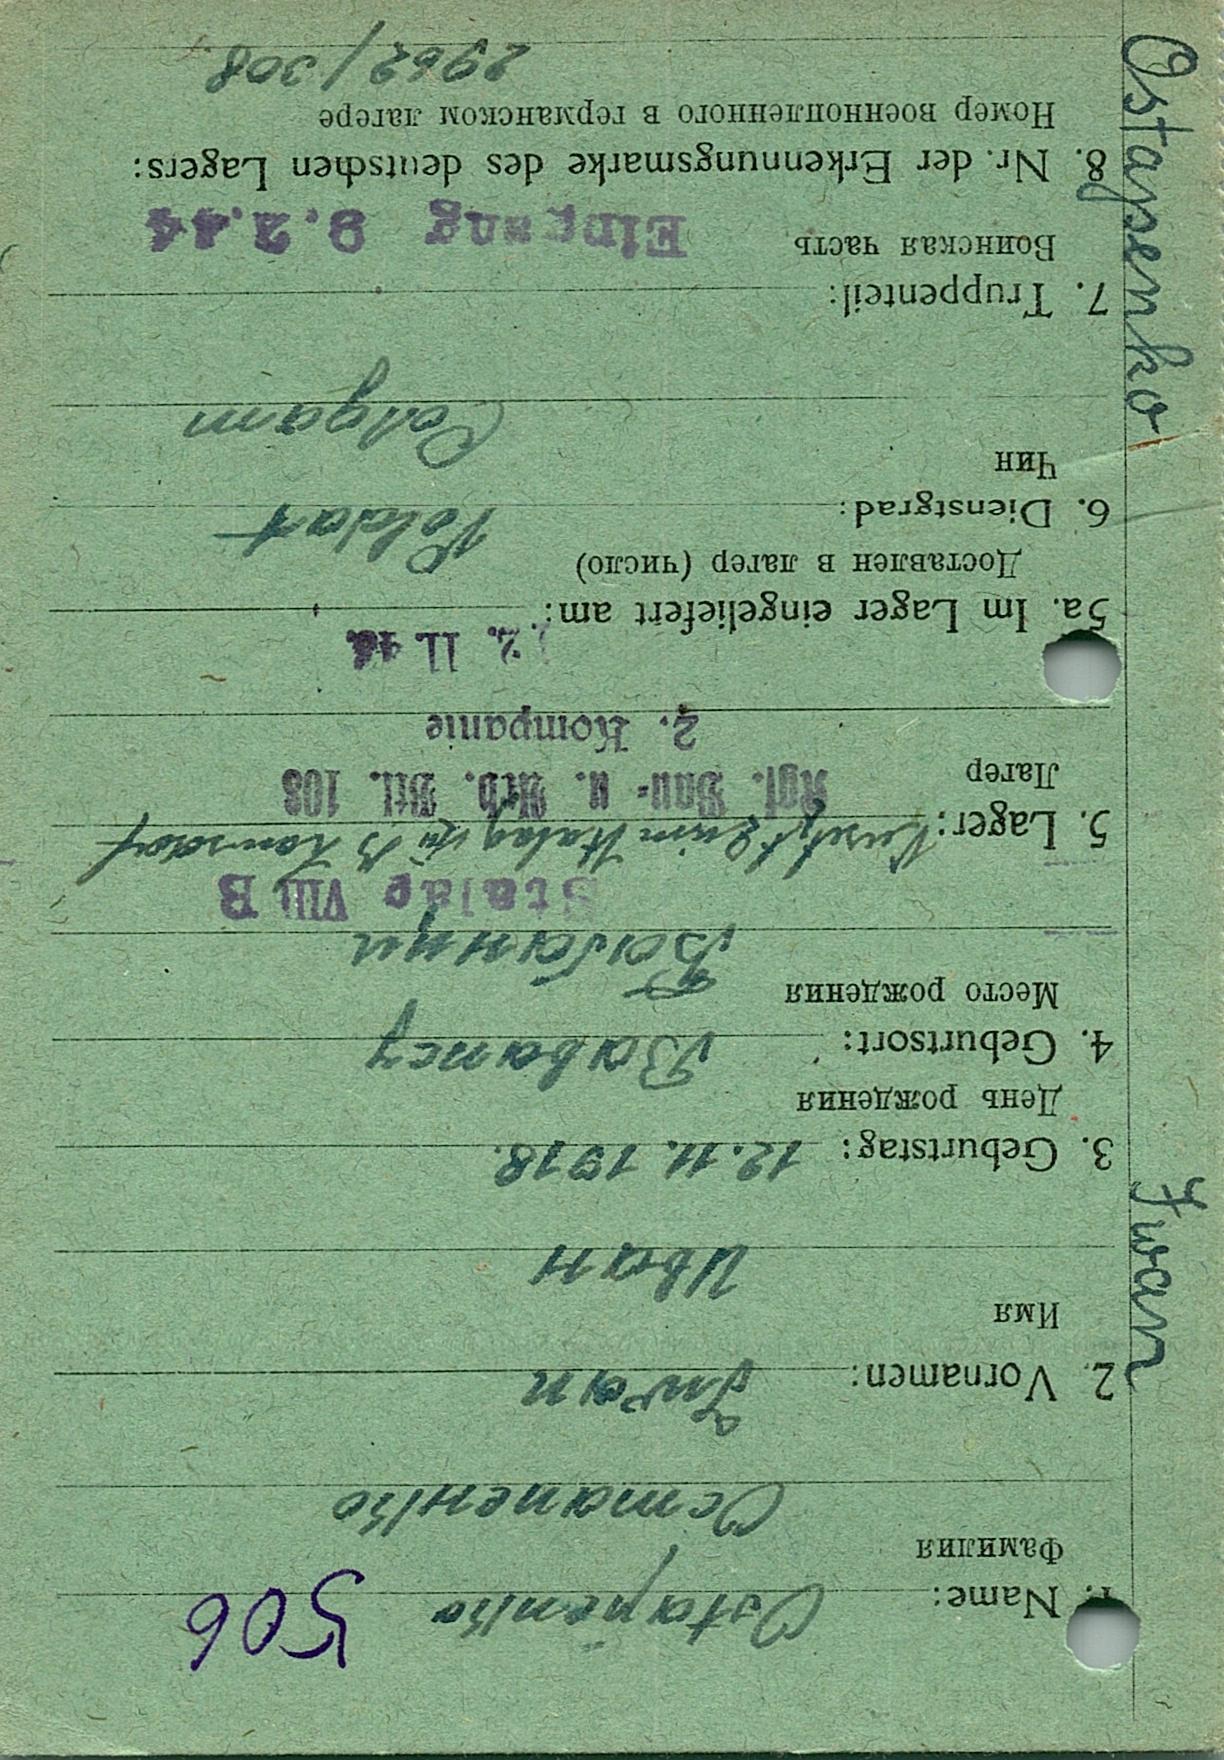 506
1. Name: Ostapenko
Фамилия
Остапенко
2. Vornamen: Iwan
Имя
Иван
3. Geburtstag: 12.11.1918.
День рождения
4. Geburtsort: Babancy
Место рождения
Бабанци
Stalag VIII B
5. Lager: zum Stalag VIII B
Лагер
Kgf. Bau- u. Arb. Btl. 108
2. Kompanie
5a. Im Lager eingeliefert am: 2. 11.
Доставлен в лагер (число)
6. Dienstgrad: Soldat
Чин
Солдат
7. Truppenteil:
Воинская часть
Eingang 9.2.44
8. Nr. der Erkennungsmarke des deutschen Lagers:
Номер военнопленного в германском лагере
2962/308.
Ostapenko Iwan